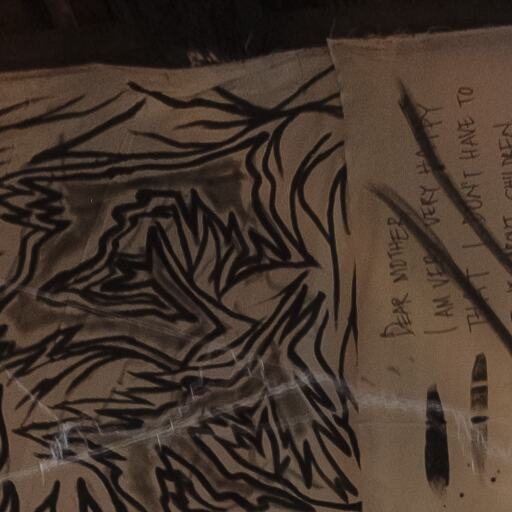 DEAR MOTHER
I AM VERY VERY HAPPY
THAT I DON'T HAVE TO
CHILDREN